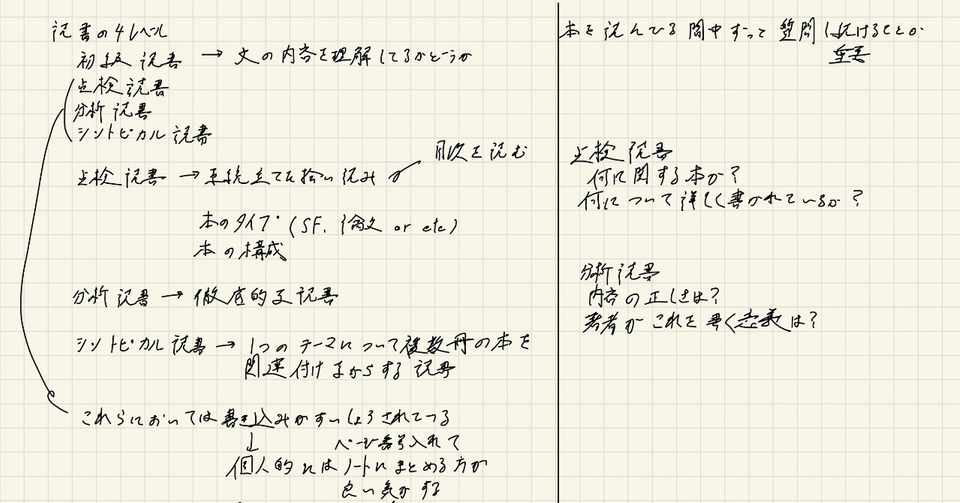 読書の4レベル
初級読書 → 文の内容を理解してるかどうか
点検読書
分析読書
シントピカル読書
目次を読む
点検読書 → 系統立てた拾い読み
本のタイプ (SF, 論文 or etc)
本の構成
分析読書 → 徹底的な読書
シントピカル読書 → 1つのテーマについて複数冊の本を
関連付けながらする読書
これらにおいては書き込みがすいしょうされている
↓ ページ番号入れて
個人的にはノートにまとめる方が
良い気がする
本を読んでる間中ずって質問し続けることが
重要
点検読書
何に関する本か?
何について詳しく書かれているか?
分析読書
内容の正しさは?
著者がこれを書く意義は?